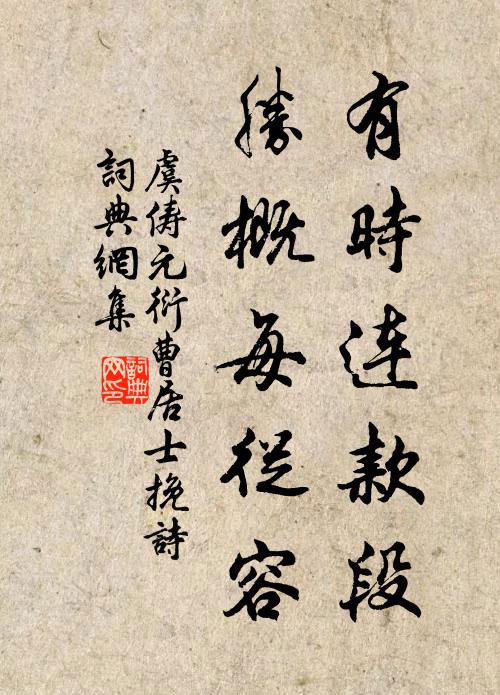 有時連款段
勝概每從容
虞儔元衍曹居士挽詩
詞典網集
詞典網印